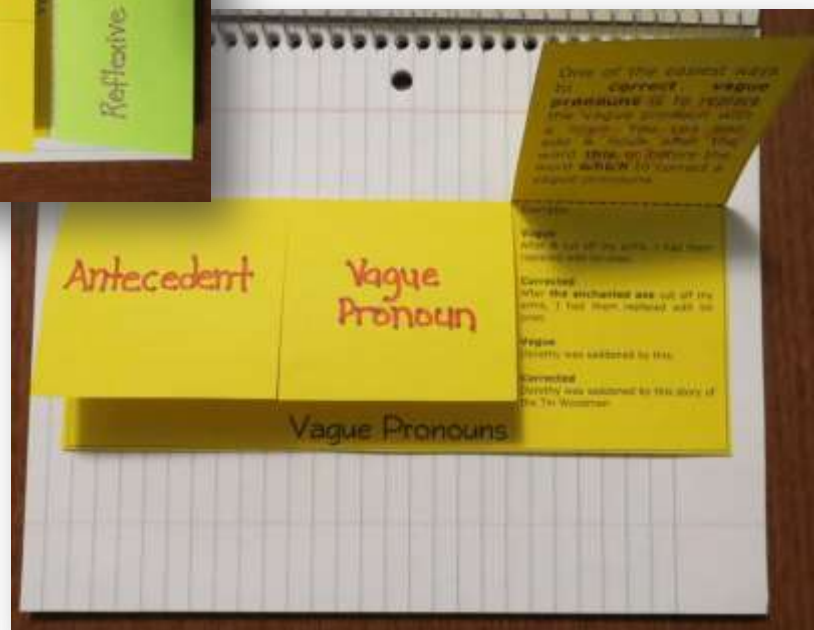 Reflexive
One of the easiest ways
to correct vague
pronouns is to replace
the vague pronoun with
a noun. You can also
add a noun after the
word this or before the
word which to correct a
vague pronouns.
Antecedent
Vague
Pronoun
Vague
After it cut off my arms, I had them
replaced with
Corrected
After the enchanted axe cut off my
arms, I had them replaced with tin
ones.
Vague
Dorothy was saddened by this.
Corrected
Dorothy was saddened by this story of
the Tin Woodman
Vague Pronouns